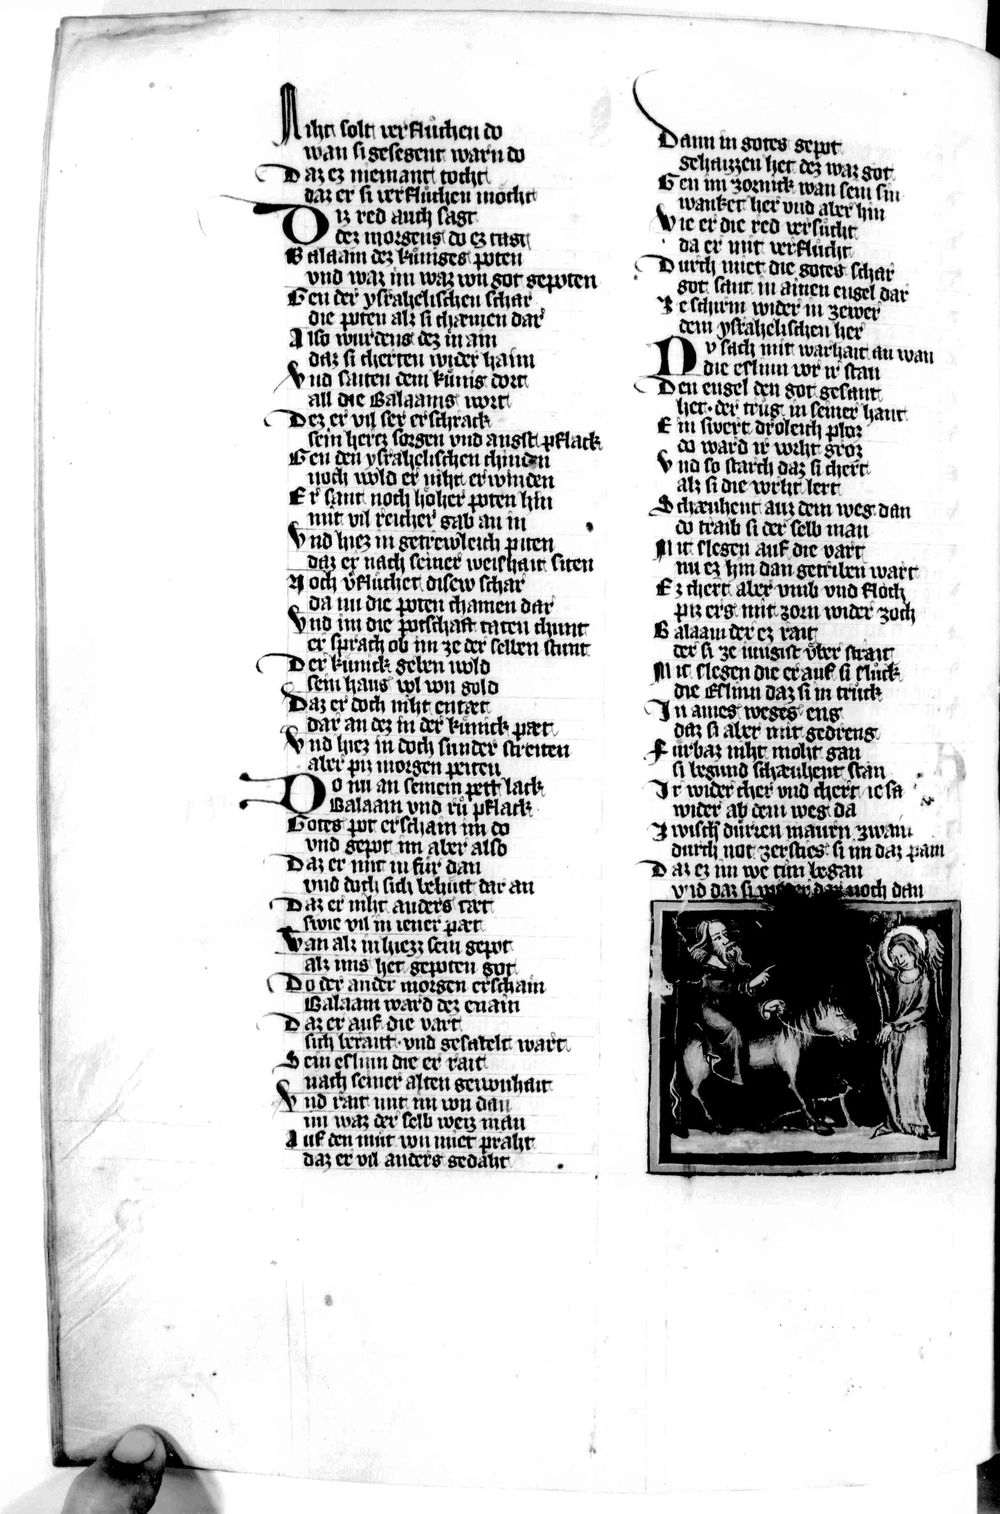 Niht solt verfluͦchen do
wan si gesegent warn do
Daz ez niemant tocht
daz er si verfluͦchen moͤcht
Diz red auch sagt
dez morgens do ez tagt
Balaam dez kuͤniges poten
vnd waz im waz von got gepoten
Gen der ysrahelischen schar
die poten als si chæmen dar
Also wurdens dez in ain
daz si cherten wider haim
Vnd saiten dem kuͤnig dort
all die Balaams wort
Dez er vil ser erschrack
sein hercz sorgen vnd angst pflack
Gen den ysrahelischen chinden
noch wold er niht erwinden
Er sant noch hoͤher poten hin
mit vil reicher gab an in
Vnd hiez in getrewleich piten
daz er nach seiner weishait siten
Noch v̓fluͦchet disew schar
da nu die poten chamen dar
Vnd im die potschaft taten chunt
er sprach ob im ze der selben stunt
Der kuͤnick geben wold
sein haus vol von gold
Daz er doch niht entæt
dar an dez in der kuͤnick pæt
Vnd hiez in doch sunder streiten
aber piz morgen peiten
Do nu an seinem pett lack
Balaam vnd ruͦ pflack
Gotes pot erschain im do
vnd gepot im aber also
Daz er mit in fuͤr dan
vnd doch sich behuͤtt dar an
Daz er niht anders tæt
swie vil in iener pæt
Wan als in hiezz sein gepot
als ims het gepoten got
Do der ander morgen erschain
Balaam ward dez enain
Daz er auf die vart
sich beraitt vnd gesatelt wart
Sein eslinn die er rait
nach seiner alten gewonhait
Vnd rait mit im von dan
im waz der selb weiz man
Auf den muͦt von miet praht
daz er vil anders gedaht
Dann in gotes gepot
gehaizzen het dez waz got
Gen im zornick wan sein sin
wanket her vnd aber hin
Wie er die red versuͦcht
da er mit verfluͦcht
Durch miet die gotes schar
got sant in ainen engel dar
Ze schirm wider in zewer
dem ysrahelischen her
Nv sach mit warhait an wan
die eslinn vor ir stan
Den engel den got gesant
het der truͦg in seiner hant
Ein swert droleich ploz
do ward ir vorht groz
Vnd so starch daz si chert
als si die vorht lert
Schæuhent auz dem weg dan
do traib si der selb man
Mit slegen auf die vart
nu ez hin dan getriben wart
Ez chert aber vmb vnd floͤch
piz ers mit zorn wider zoch
Balaam der ez rait
der si ze iungist vͤber strait
Mit slegen die er auf si sluͦck
die Eslinn daz si in truͦck
In aines weges eng
daz si aber mit gedreng
Fuͤrbaz niht moht gan
si begund schæuhent stan
Ir wider cher vnd chert ie sa
wider ab dem weg da
Zwisch duͤrren maurn zwain
durch not zersties si im daz pain
Daz ez im we tun began
vnd daz si wider dar noch dan